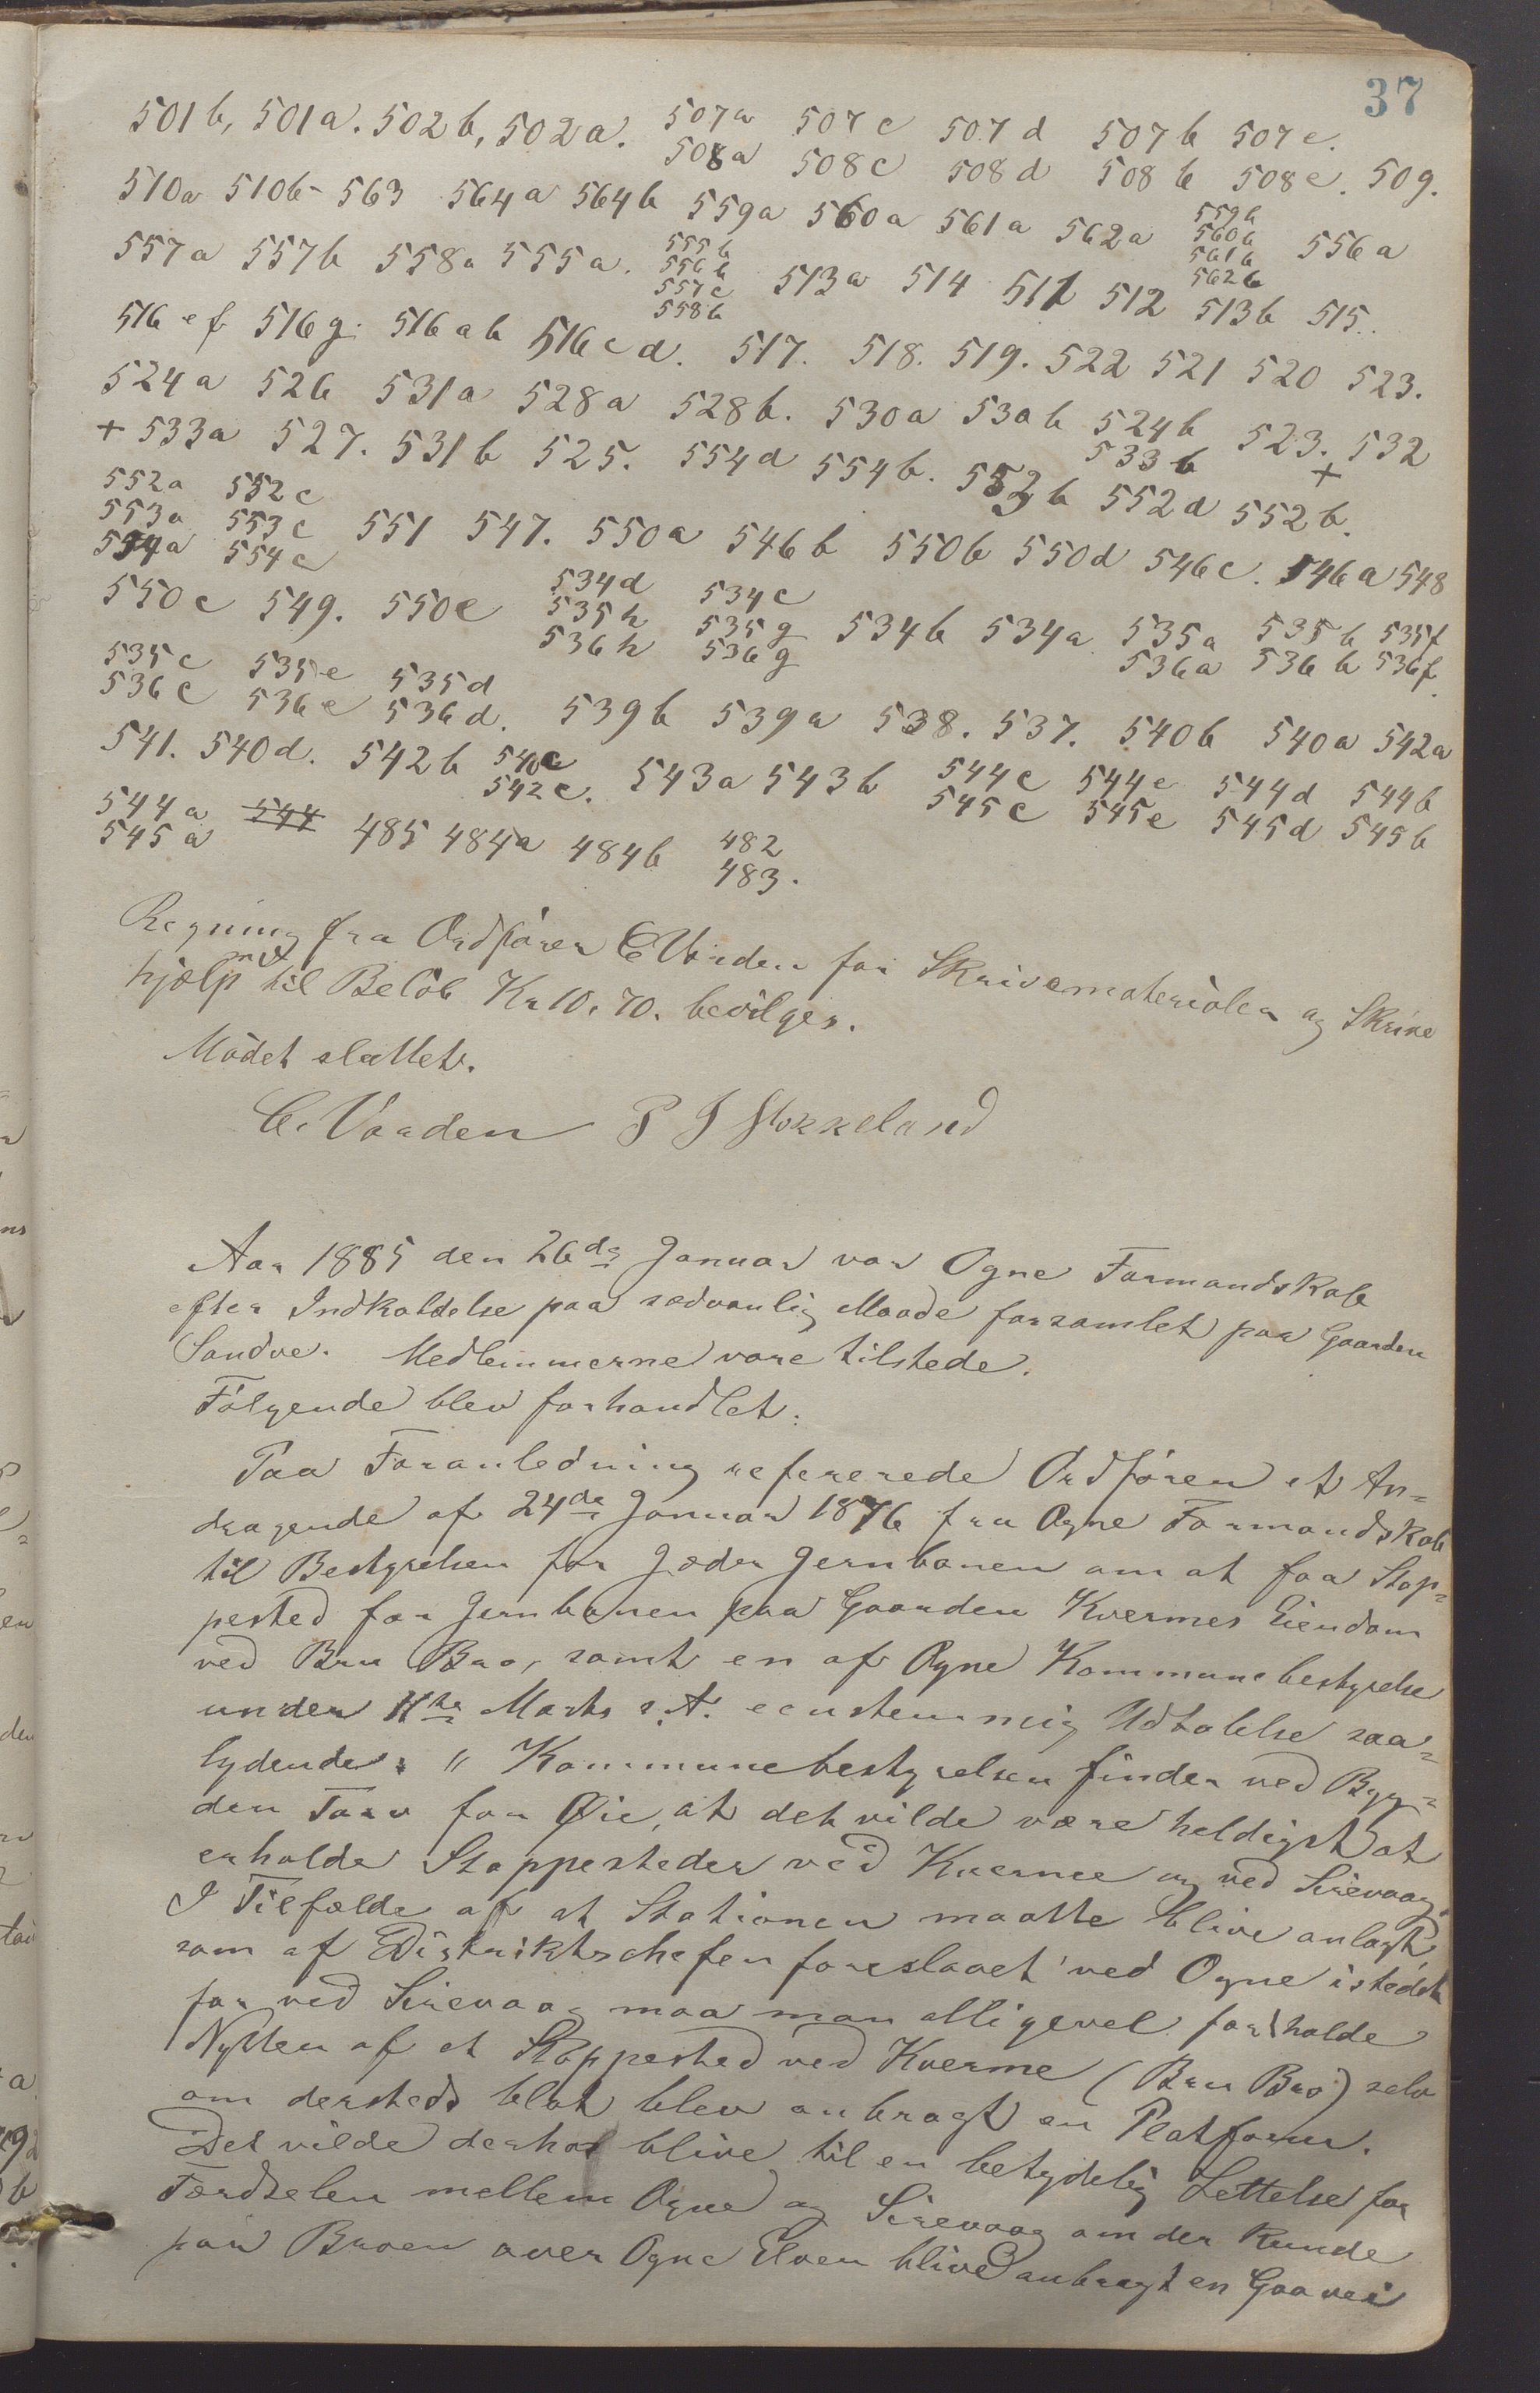 37
501b, 501a. 502b, 502a. 507a 507c 507d 507b 507e.
508a 508c 508d 508b 508e. 509.
510a 510b 563 564a 564b 559a 560a 561a 562a 559b 560b 561b 562b 556a
557a 557b 558a 555a. 555b 556b 557c 558b 513a 514 511 512 513b 515.
516 ef 516g. 516ab 516cd. 517. 518. 519. 522 521 520 523.
524a 526 531a 528a 528b. 530a 530b 524b 523. 532
+ 533a 527. 531b 525. 554d 554b. 533b +
553b 552d 552b.
552a 552c
553a 553c 551 547. 550a 546b 550b 550d 546c. 546a 548
554a 554c
550c 549. 550e 534d 534c
535h 535g 534b 534a 535a 535b 535f
536h 536g 536a 536b 536f.
535c 535e 535d
536c 536e 536d. 539b 539a 538. 537. 540b 540a 542a
541. 540d. 542b 540c 543a 543b 544c 544e 544d 544b
542c. 545c 545e 545d 545b
544a 544 485 484a 484b 482
545a 483.
Regning fra Ordfører C Vaaden for Skrivematerialer og Skrive
hjælp mt til Beløb Kr 10.70. bevilges.
Mødet sluttet.
C. Vaaden P J Stokkeland
Aar 1885 den 26de Januar var Ogne Formandskab
efter Indkaldelse paa sædvanlig Maade forsamlet paa Gaarden
Sandve. Medlemmerne vare tilstede.
Følgende blev forhandlet:
Paa Foranledning refererede Ordføren et An-
dragende af 24de Januar 1876 fra Ogne Formandskab
til Bestyrelsen for Jæder Jernbanen om at faa Stop-
pested for Jernbanen paa Gaarden Kvermes Eiendom
ved Bru Bro, samt en af Ogne Kommunebestyrelse
under 11te Marts s. A. eenstemmig Udtalelse saa-
lydende: "Kommunebestyrelsen finder ved Byg-
den Tarv for Øie, at det vilde være heldigst at
erholde Stoppesteder ved Kverme og ved Sirevaag.
I Tilfælde af at Stationen maatte blive anlagt,
som af Distriktschefen foreslaaet ved Ogne istedet
for ved Sirevaag maa man alligevel forholde
Nytten af et Stoppested ved Kverme (Bru Bro) selv
om dersteds blot blev anbragt en Platform.
Det vilde derhos blive til en betydelig Lettelse for
Færdselen mellem Ogne og Sirevaag om der kunde
paa Broen over Ogne Elven blive anbragt en Gaavei